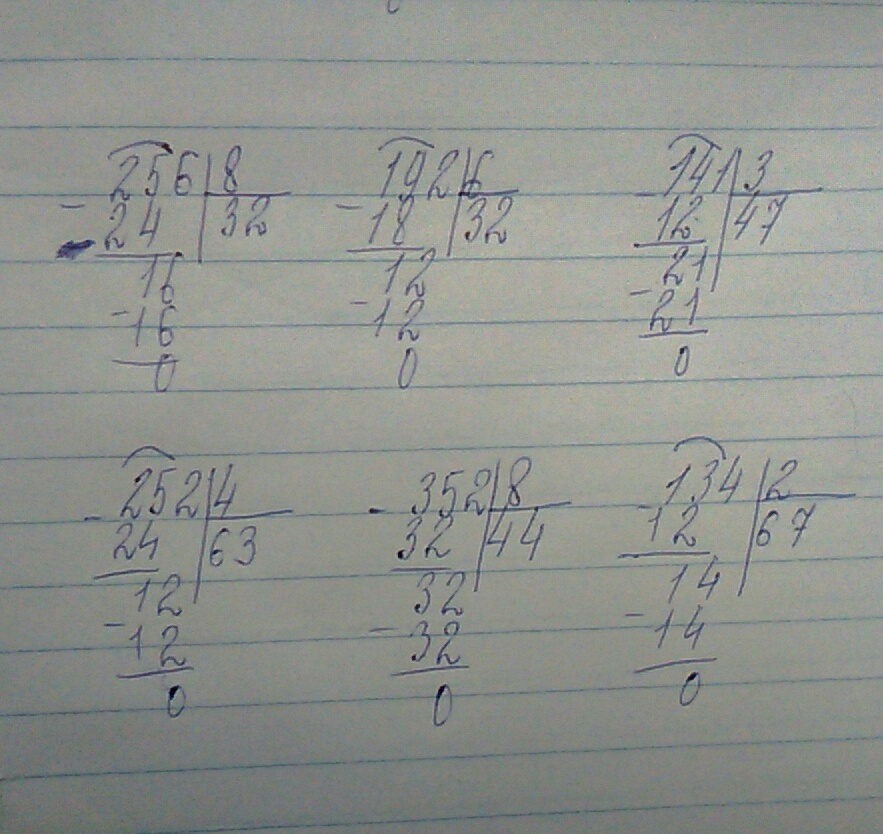 256 8 192 6 141 3
- 24 32 - 18 32 - 12 47
16 12 21
- 16 - 12 - 21
0 0 0
- 252 4 - 352 8 - 134 2
24 63 32 44 12 67
12 32 14
- 12 - 32 - 14
0 0 0